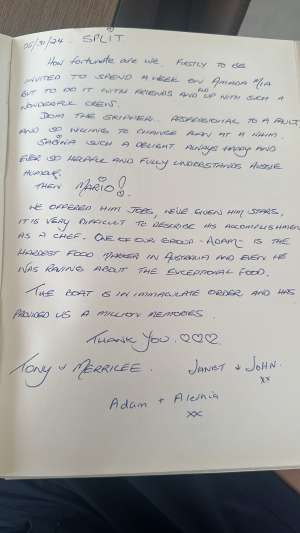 05/30/24. SPLIT
How fortunate are we. Firstly to be
invited to spend a week on Amada M/A
but to do it with friends and up with such a
wonderful crew.
Dom the skipper. Professional to a fault
and so willing to change plan at a whim.
Sabina such a delight always happy and
ever so helpful and fully understands Aussie
humour.
Then Mario!
We offered him jobs, we've given him stars,
it is very difficult to describe his accomplishments
as a chef. One of our group - Adam - is the
hardest food marker in Australia and even he
was raving about the exceptional food.
The boat is in immaculate order and has
provided us a million memories.
Thank you. ♡♡♡
Tony & Merrilee. Janet & John.
xx
Adam + Alernia
xx